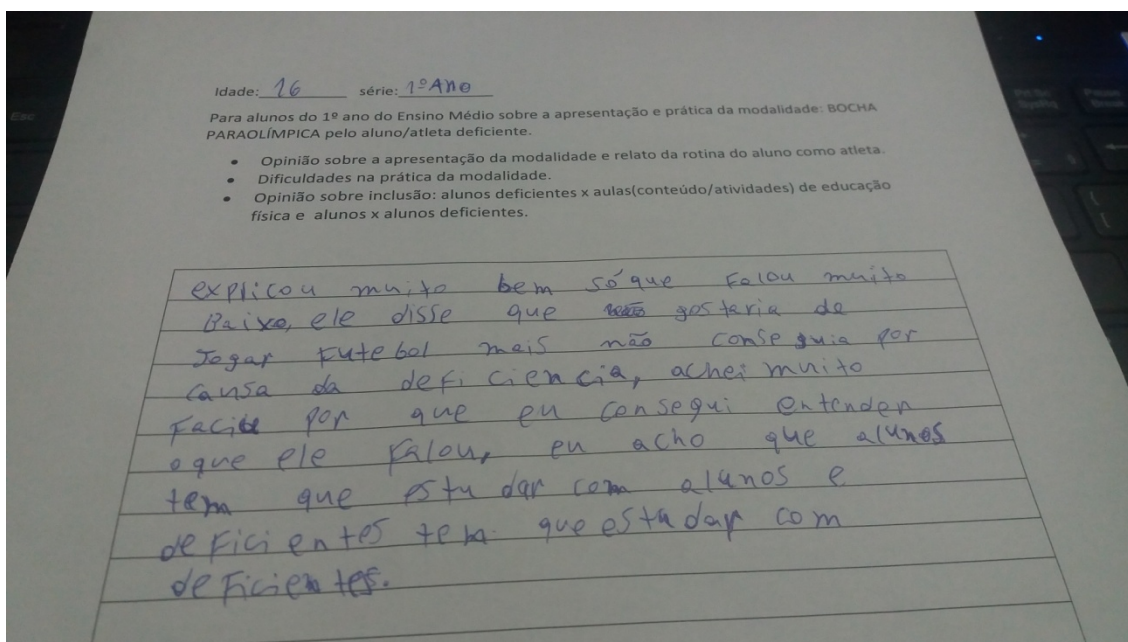 Idade: 16 série: 1º Ano
Para alunos do 1º ano do Ensino Médio sobre a apresentação e prática da modalidade: BOCHA
PARAOLÍMPICA pelo aluno/atleta deficiente.
• Opinião sobre a apresentação da modalidade e relato da rotina do aluno como atleta.
• Dificuldades na prática da modalidade.
• Opinião sobre inclusão: alunos deficientes x aulas(conteúdo/atividades) de educação
física e alunos x alunos deficientes.
explicou muito bem só que Falou muito
Baixo, ele disse que gostaria de
Jogar Futebol mais não conseguia por
causa da deficiencia, achei muito
Facil por que eu consegui entender
oque ele Falou, eu acho que alunos
tem que estudar com alunos e
deficientes tem que estudar com
deficientes.